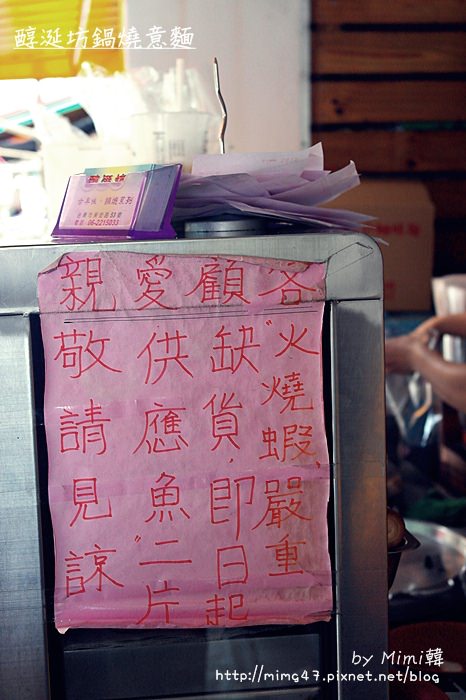 醇涎坊鍋燒意麵
醇涎坊
古早味、鍋燒系列
06-2215033
親愛顧客
"火燒蝦、嚴重
缺貨,即日起
供應魚"二片
敬請見諒
by Mimi韓
http://mimg47.pixnet.net/blog